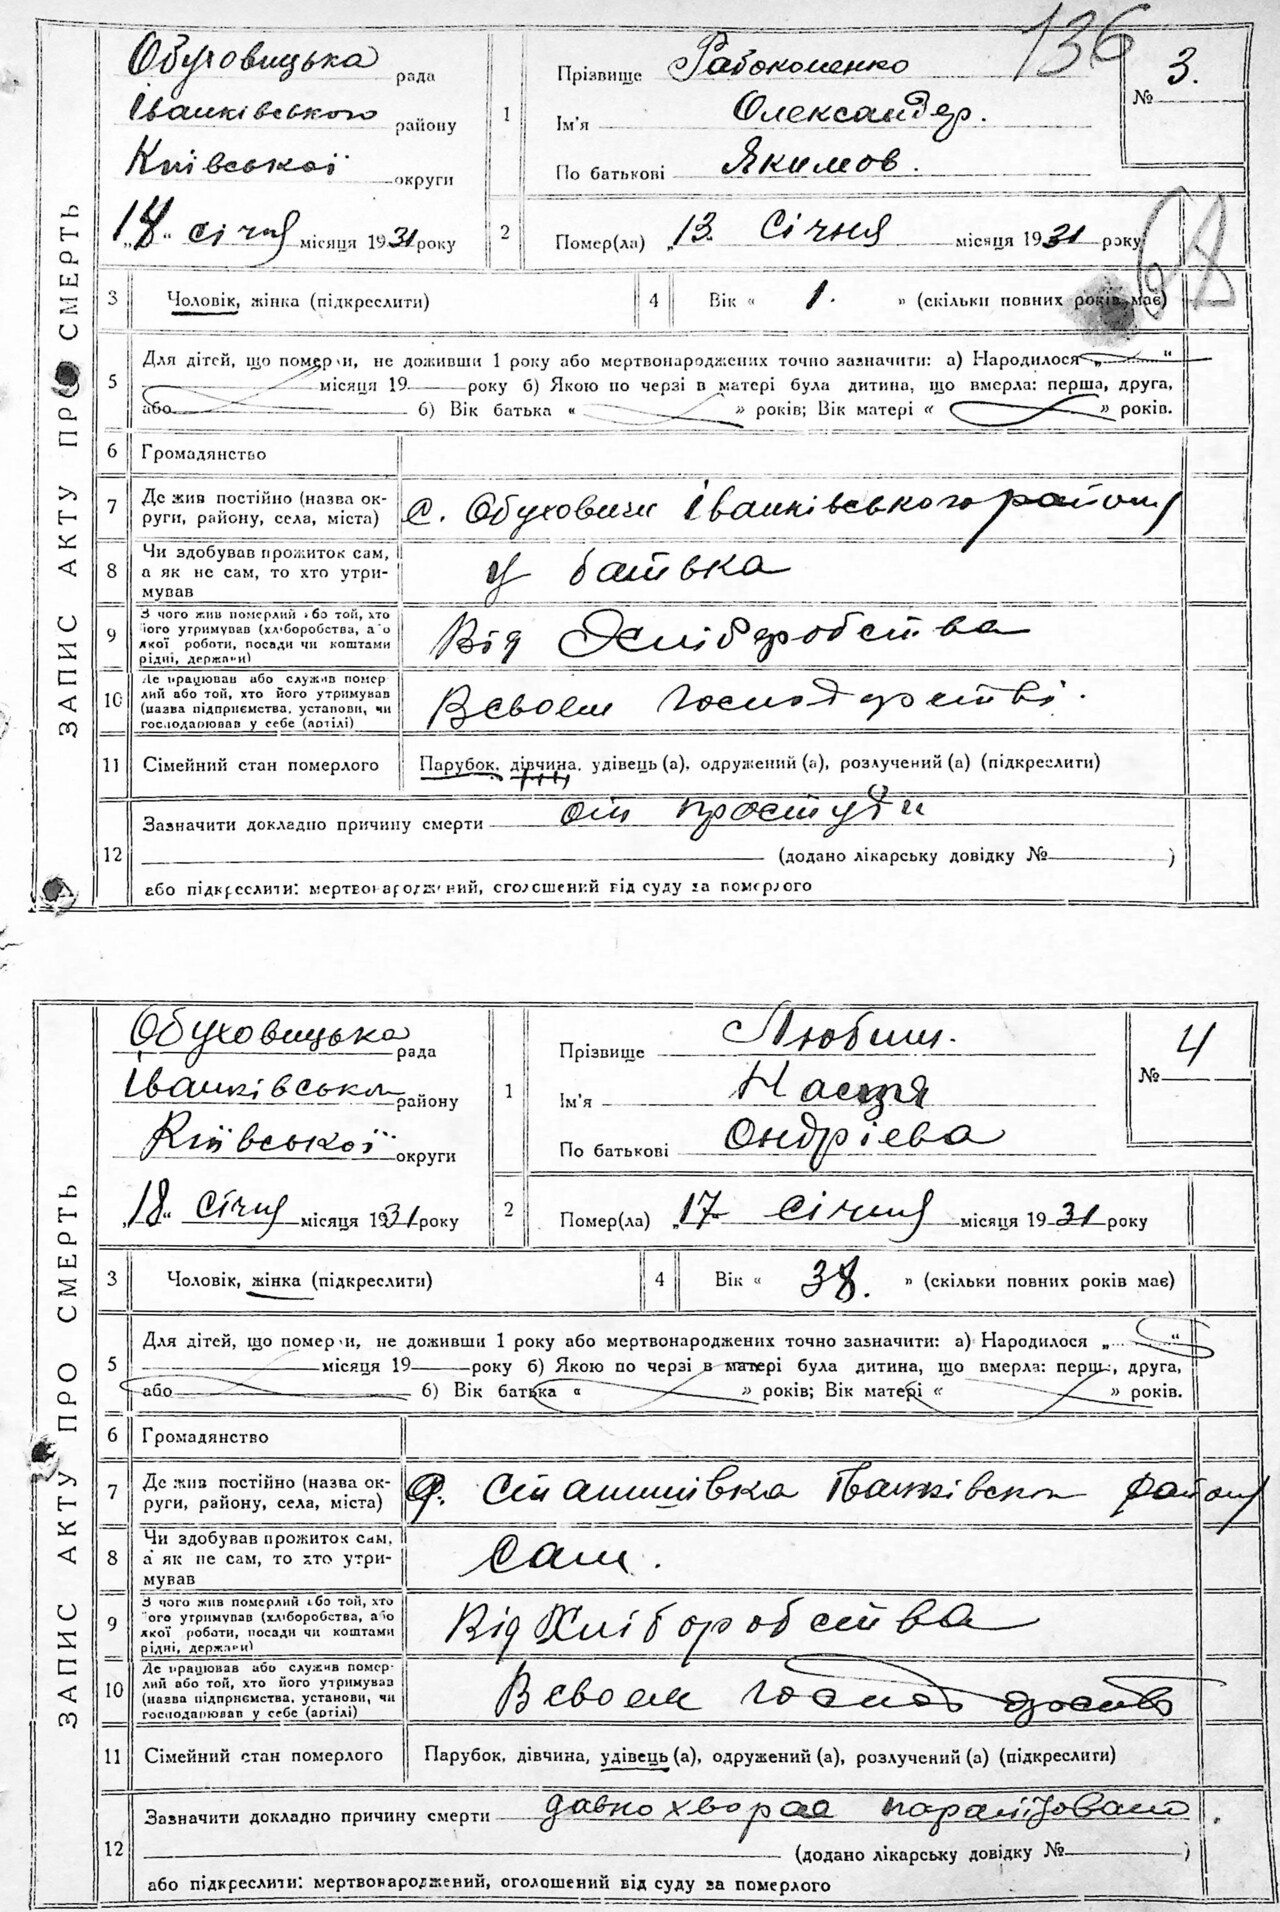 136
ЗАПИС АКТУ ПРО СМЕРТЬ
Обуховицька рада
Іванківського району
Київської округи
„18“ січня місяця 1931 року
1
Прізвище Рабоконенко
Ім'я Олександер.
По батькові Якимов.
№ 3.
2
Помер(ла) „13“ Січня місяця 1931 року
68
3 Чоловік, жінка (підкреслити)
4 Вік « 1. » (скільки повних років має)
5 Для дітей, що померли, не доживши 1 року або мертвонароджених точно зазначити: а) Народилося „ “
місяця 19 року б) Якою по черзі в матері була дитина, що вмерла: перша, друга,
або б) Вік батька « » років; Вік матері « » років.
6 Громадянство
7 Де жив постійно (назва ок-
руги, району, села, міста)
с. Обуховичи Іванківського району
8 Чи здобував прожиток сам,
а як не сам, то хто утри-
мував
у батька
9 З чого жив померлий або той, хто
його утримував (хліборобства, або
якої роботи, посади чи коштами
рідні, держави)
Від Хліборобства
10 Де працював або служив помер-
лий або той, хто його утримував
(назва підприємства, установи, чи
господарював у себе (артілі)
Всвоем господарстві.
11 Сімейний стан померлого
Парубок, дівчина, удівець (а), одружений (а), розлучений (а) (підкреслити)
12 Зазначити докладно причину смерти от простуди
(додано лікарську довідку № )
або підкреслити: мертвонароджений, оголошений від суду за померлого
ЗАПИС АКТУ ПРО СМЕРТЬ
Обуховицька рада
Іванківськ району
Київської округи
„18“ Січня місяця 1931 року
1
Прізвище Любич.
Ім'я Настя
По батькові Ондрієва
№ 4
2
Помер(ла) „17“ січня місяця 1931 року
3 Чоловік, жінка (підкреслити)
4 Вік « 38. » (скільки повних років має)
5 Для дітей, що померли, не доживши 1 року або мертвонароджених точно зазначити: а) Народилося „ “
місяця 19 року б) Якою по черзі в матері була дитина, що вмерла: перша, друга,
або б) Вік батька « » років; Вік матері « » років.
6 Громадянство
7 Де жив постійно (назва ок-
руги, району, села, міста)
Станишівка Іванківськ району
8 Чи здобував прожиток сам,
а як не сам, то хто утри-
мував
сам.
9 З чого жив померлий або той, хто
його утримував (хліборобства, або
якої роботи, посади чи коштами
рідні, держави)
Від Хліборобства
10 Де працював або служив помер-
лий або той, хто його утримував
(назва підприємства, установи, чи
господарював у себе (артілі)
Всвоем господарстві
11 Сімейний стан померлого
Парубок, дівчина, удівець (а), одружений (а), розлучений (а) (підкреслити)
12 Зазначити докладно причину смерти давно хворая
(додано лікарську довідку № )
або підкреслити: мертвонароджений, оголошений від суду за померлого